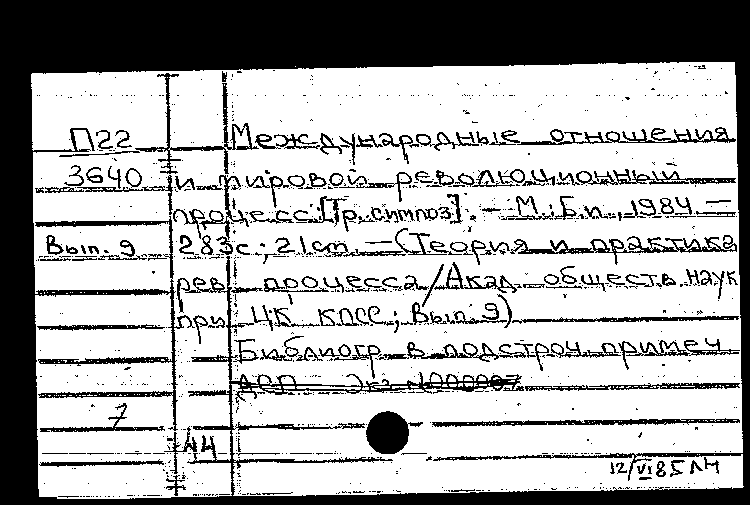 П22 Международные отношения
3640 и мировой революционный
процесс: [Тр. симпоз]. — М.: Б.и., 1984. —
Вып. 9 283с.; 21см. — (Теория и практика
рев. процесса / Акад. обществ. наук
при ЦК КПСС; Вып. 9)
Библиогр. в подстроч. примеч.
ДСП Экз. №000007
7
44
12/VI 85 ЛН